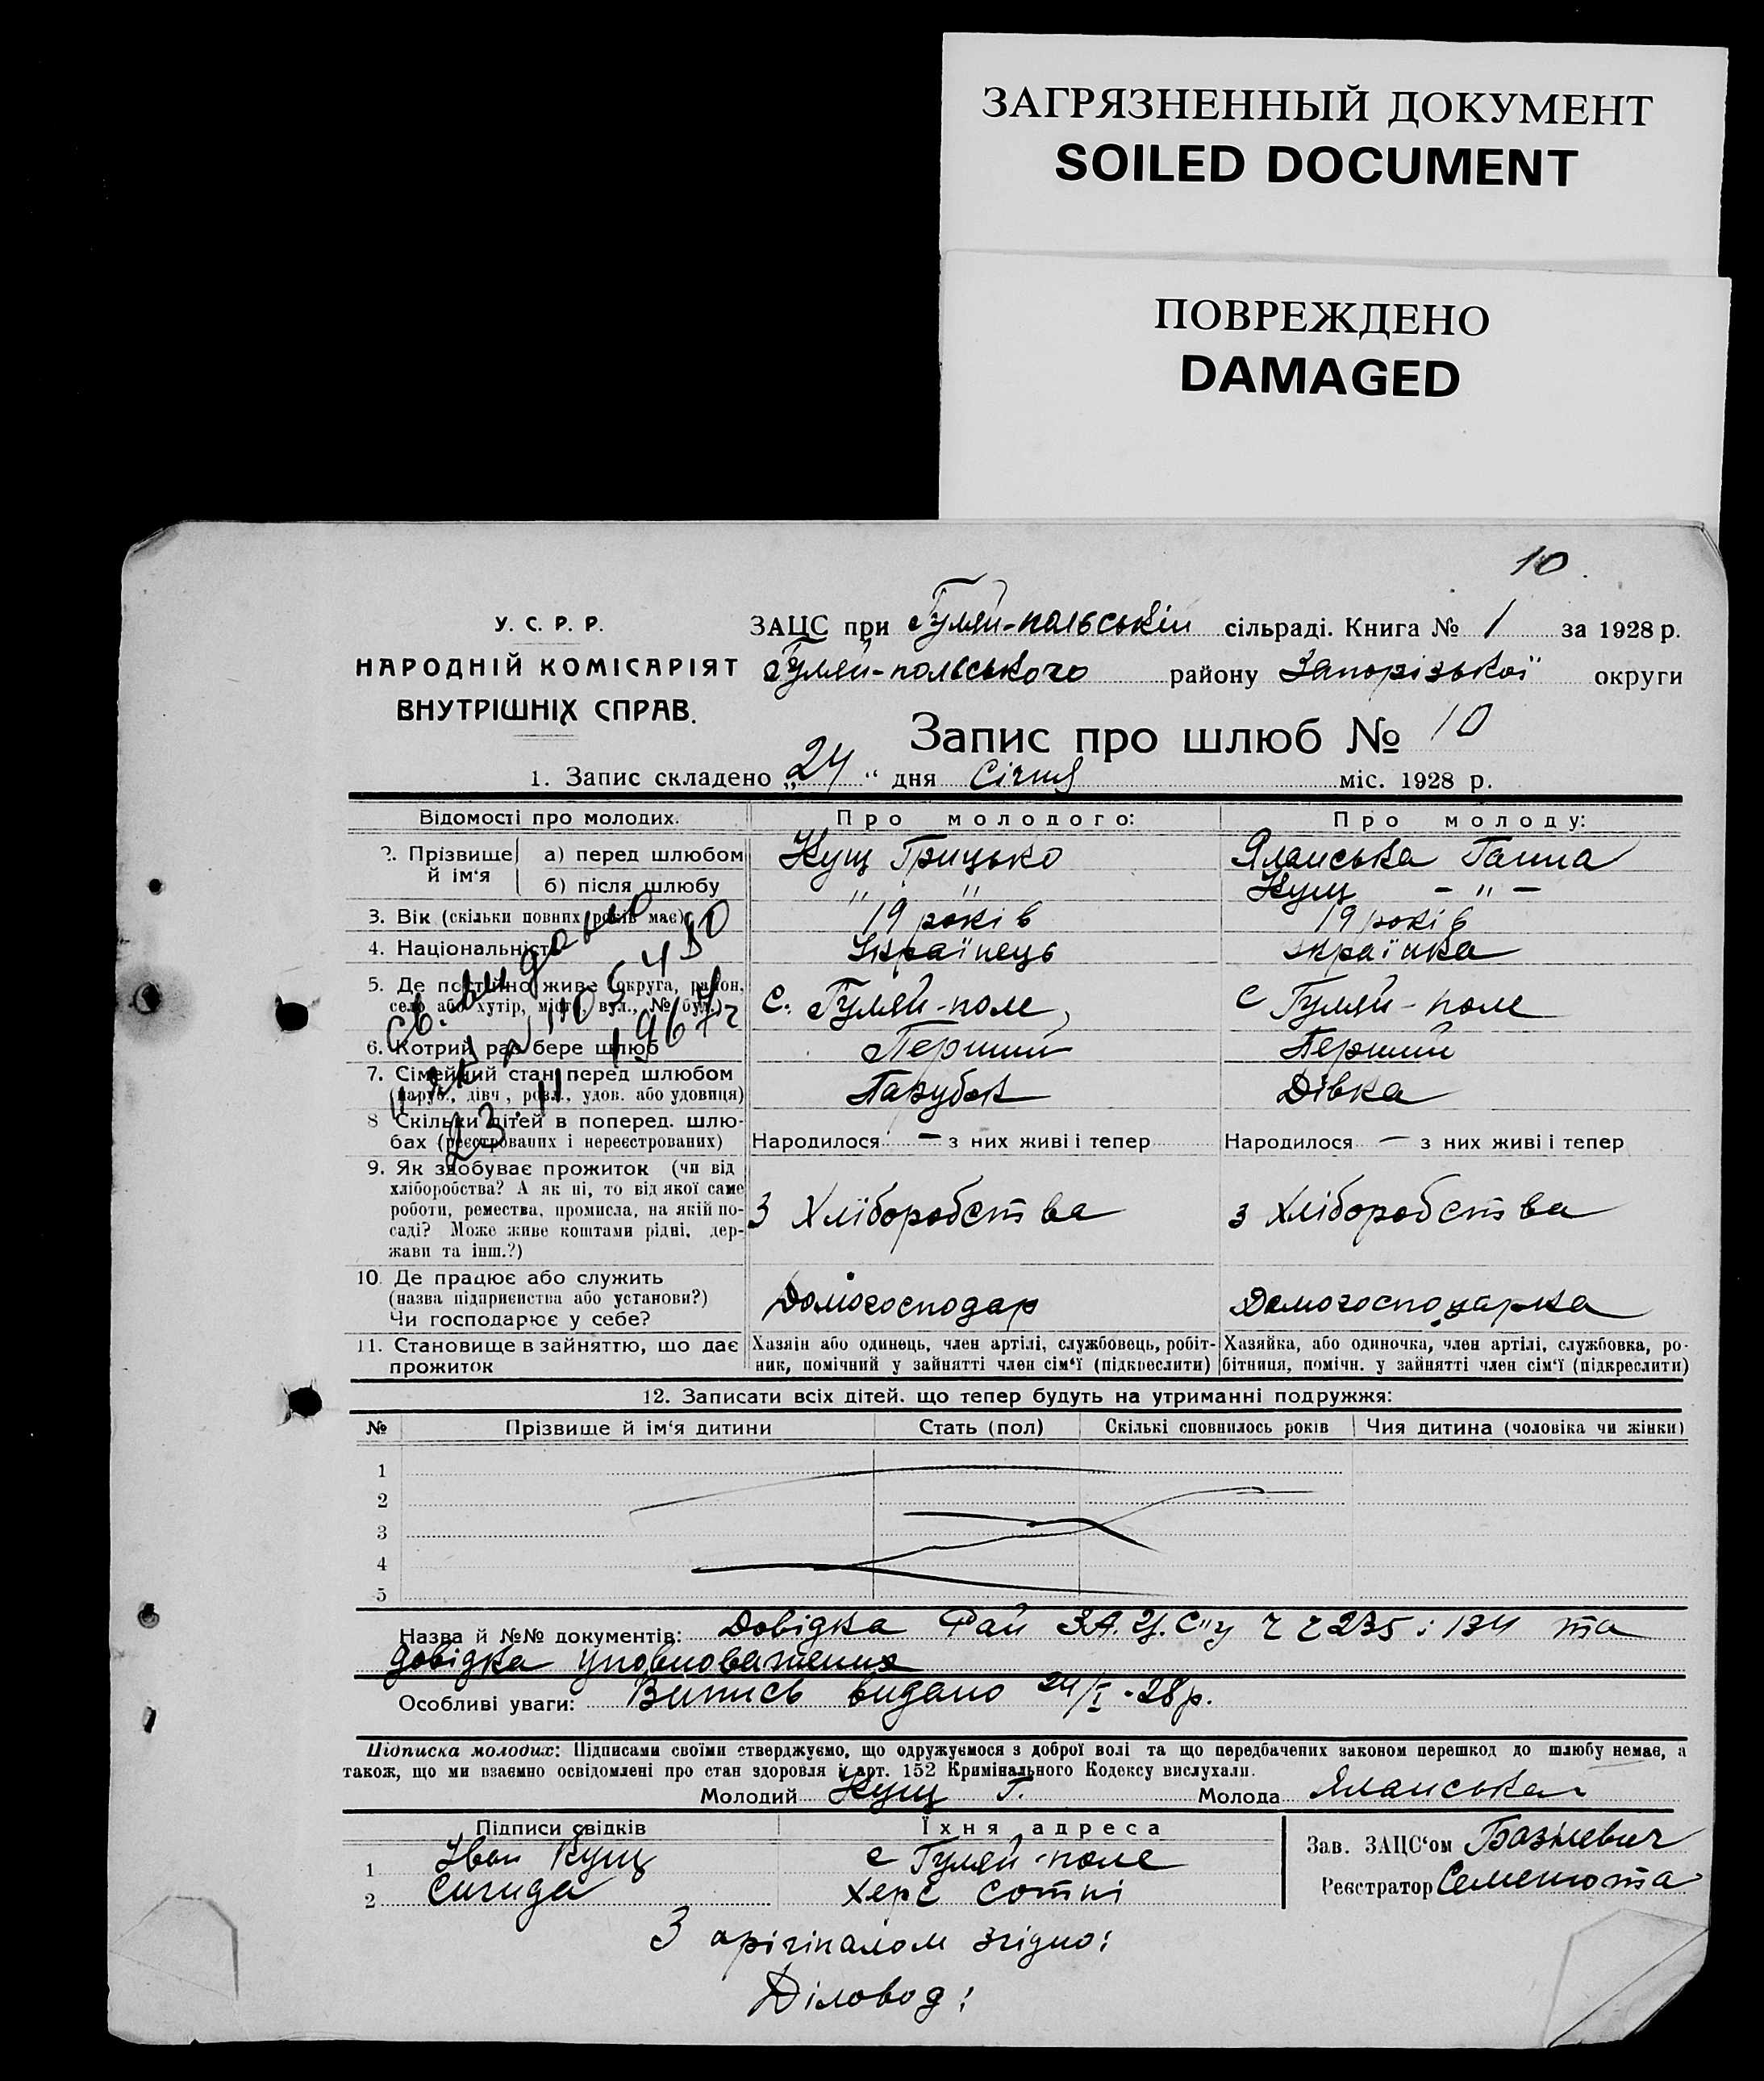 ЗАГРЯЗНЕННЫЙ ДОКУМЕНТ
SOILED DOCUMENT
ПОВРЕЖДЕНО
DAMAGED
10
У. С. Р. Р.
НАРОДНІЙ КОМІСАРІЯТ
ВНУТРІШНІХ СПРАВ.
ЗАЦС при Гуляй-польській сільраді. Книга № 1 за 1928 р.
Гуляй-польського району Запорізької округи
Запис про шлюб № 10
1. Запис складено „24“ дня Січня міс. 1928 р.
Відомості про молодих. Про молодого: Про молоду:
2. Прізвище й ім‘я а) перед шлюбом Кущ Грицько Яланська Ганна
б) після шлюбу " " Кущ - " -
3. Вік (скільки повних років має) 19 років 19 років
4. Національність Українець Українка
5. Де постійно живе (округа, район, село або хутір, місто, вул., № буд.) с. Гуляй-поле, с Гуляй-поле
6. Котрий раз бере шлюб Перший Перший
7. Сімейний стан перед шлюбом Парубок Дівка
(паруб., дівч., розл., удов. або удовиця)
8 Скільки дітей в поперед. шлю-
бах (реєстрованих і нереєстрованих) Народилося — з них живі і тепер Народилося — з них живі і тепер
9. Як здобуває прожиток (чи від
хліборобства? А як ні, то від якої саме
роботи, ремества, промисла, на якій по- З Хліборобства з Хліборобства
саді? Може живе коштами рідні, дер-
жави та інш.?)
10. Де працює або служить
(назва підприєнства або установи?) Домогосподар Домогосподарка
Чи господарює у себе?
11. Становище в зайняттю, що дає Хазяїн або одинець, член артілі, службовець, робіт- Хазяйка, або одиночка, член артілі, службовка, ро-
прожиток ник, помічний у зайнятті член сім‘ї (підкреслити) бітниця, помічн. у зайнятті член сім‘ї (підкреслити)
Св. видано
23. 11. 1967 г
12. Записати всіх дітей. що тепер будуть на утриманні подружжя:
№ Прізвище й ім‘я дитини Стать (пол) Скількі сповнилось років Чия дитина (чоловіка чи жінки)
1
2
3
4
5
Назва й №№ документів: Довідка Рай З.А.Ц.С"у ч ч 235 і 134 та
довідка уповноважених
Особливі уваги: Випись видано 24/I-28р.
Підписка молодих: Підписами своїми стверджуємо, що одружуємося з доброї волі та що передбачених законом перешкод до шлюбу немає, а
також, що ми взаємно освідомлені про стан здоровля й арт. 152 Кримінального Кодексу вислухали.
Молодий Кущ Г. Молода Яланська
Підписи свідків Їхня адреса
1 Іван Кущ с Гуляй-поле
2 Сигида Херс Сотні
Зав. ЗАЦС‘ом Базілевич
Реєстратор Семенюта
З орігіналом згідно:
Діловод: